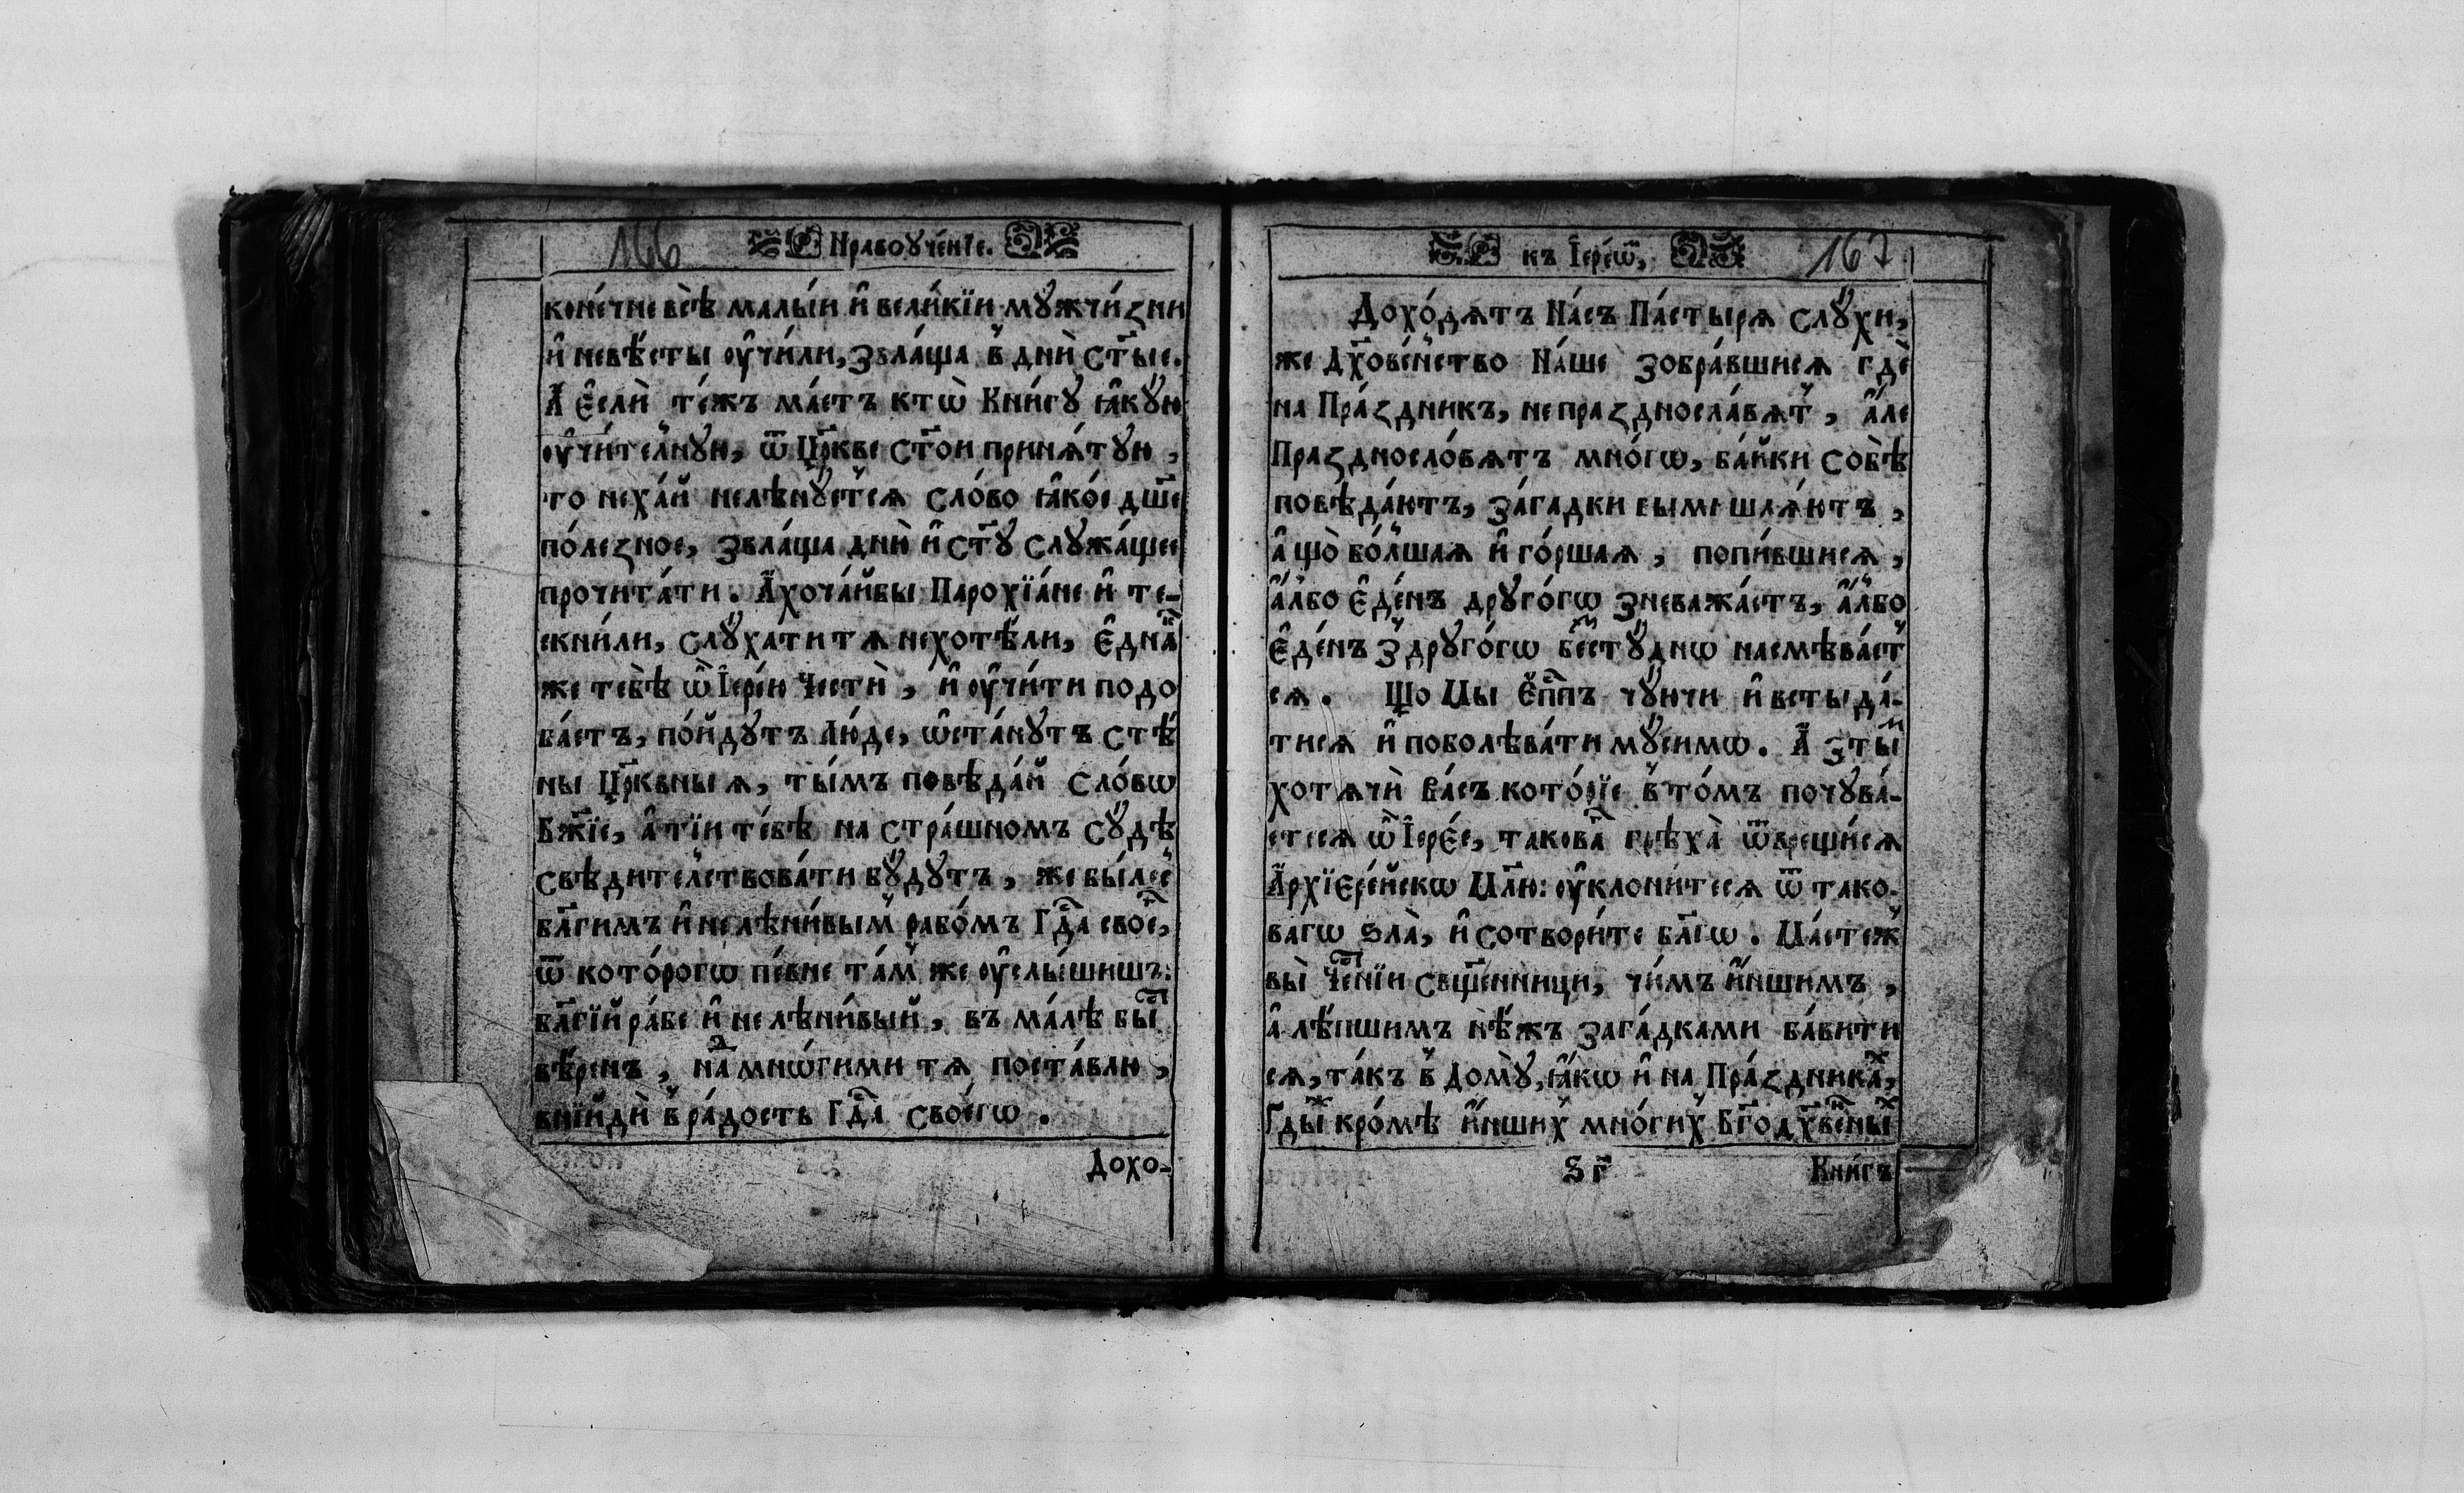 166 Нравоꙋче́нїе.
коне́чне всѣ̀ малы́и и҆ вели́кїи мꙋжчи́зни
и҆ невѣ́сты ᲂу҆чи́ли, звла́ща в̾ днѝ ст҃ые.
А҆ є҆слѝ те́жъ ма́етъ ктѡ̀ Кни́гꙋ ꙗ҆кꙋ́ю
ᲂу҆чи́тел̾нꙋю, ѿ Цр҃кве ст҃ои приня́тꙋю,
то неха́й нелѣнꙋ́ет̾ся сло́во ꙗ҆ко́е дш҃е
поле́зное, звла́ща днѝ и҆ ст҃ꙋ слꙋжа́щее
прочита́ти. А҆ хоча́йбы Парохїа́не и҆ те-
скни́ли, слꙋ́хати тѧ нехотѣ́ли, є҆дна́къ
же тебѣ̀ ѡ҆ І҆ере́ю че́стнѝ, и҆ ᲂу҆чи́ти подо
ба́етъ, по́йдꙋтъ лю́де, ѡ҆ста́нꙋтъ стѣ́
ны Цр҃квныѧ, ты́мъ повѣда́й сло́вѡ
Бж҃їе, а҆ тїи тебѣ̀ на стра́шномъ сꙋдѣ̀
свѣди́тел̾ствова́ти бꙋ́дꙋтъ, же бы́лес̾
бл҃гимъ и҆ нелѣни́вым̾ рабо́мъ Гд҃а свое҃,
ѿ кото́рогѡ пе́вне та́м̾ же ᲂу҆слы́шишъ:
бл҃гїй ра́бе и҆ нелѣни́вый, въ ма́лѣ бы҃
вѣ́ренъ, на́д̾ мнѡ́гими тѧ поста́влю,
вни́йдѝ в̾ ра́дость Гд҃а своегѡ̀.
Дохо-
къ І҆ере́ѡм̾, 167
Дохо́дѧтъ На́съ Па́стырѧ слꙋ́хи,
же Дх҃ове́н̾ство На́ше зобра́вшисѧ гдѐ
на Пра́здникъ, непраздносла́вѧт̾, а҆́ле
Праздносло́вѧтъ мно́гѡ, ба́йки собѣ̀
повѣда́ютъ, за́гадки вымышлѧ́ютъ,
а҆ що̀ бо́л̾шаѧ и҆ го́ршаѧ, попи́вшисѧ,
а҆́лбо є҆де́нъ дрꙋго́гѡ зневажа́етъ, а҆́лбо
є҆де́нъ з̾ дрꙋго́гѡ без̾стꙋ́днѡ насмѣва́ет̾
сѧ. Що Мы Е҆пⷭ҇пъ чꙋ́ючи и҆ встыда́-
тисѧ и҆ поболѣва́ти мꙋ́симѡ. А҆ з ты́м
хотѧчѝ ва́съ кото́рїе в̾ то́мъ почꙋва́-
етесѧ ѡ҆ І҆ере́е, такова҃ грѣха̀ ѿврещи́сѧ
А҆рхїере́йскѡ Мл҃ю: ᲂу҆клони́тесѧ ѿ тако-
вагѡ ѕла̀, и҆ сотвори́те бл҃гѡ. Ма́етеж̾
вы̀ Че҃нїи сщ҃е́нници, чи́мъ и҆́ншимъ,
а҆ лѣ́пшимъ нѣ́жъ зага́дками ба́вити
сѧ, та́къ в̾ домꙋ̀, ꙗ҆́кѡ и҆ на Пра́здника҃х,
Гды́ж̾ кро́мѣ и҆́нших̾ мно́гих̾ Бг҃одх҃ве́ных
ѕг҃
Кни́гъ